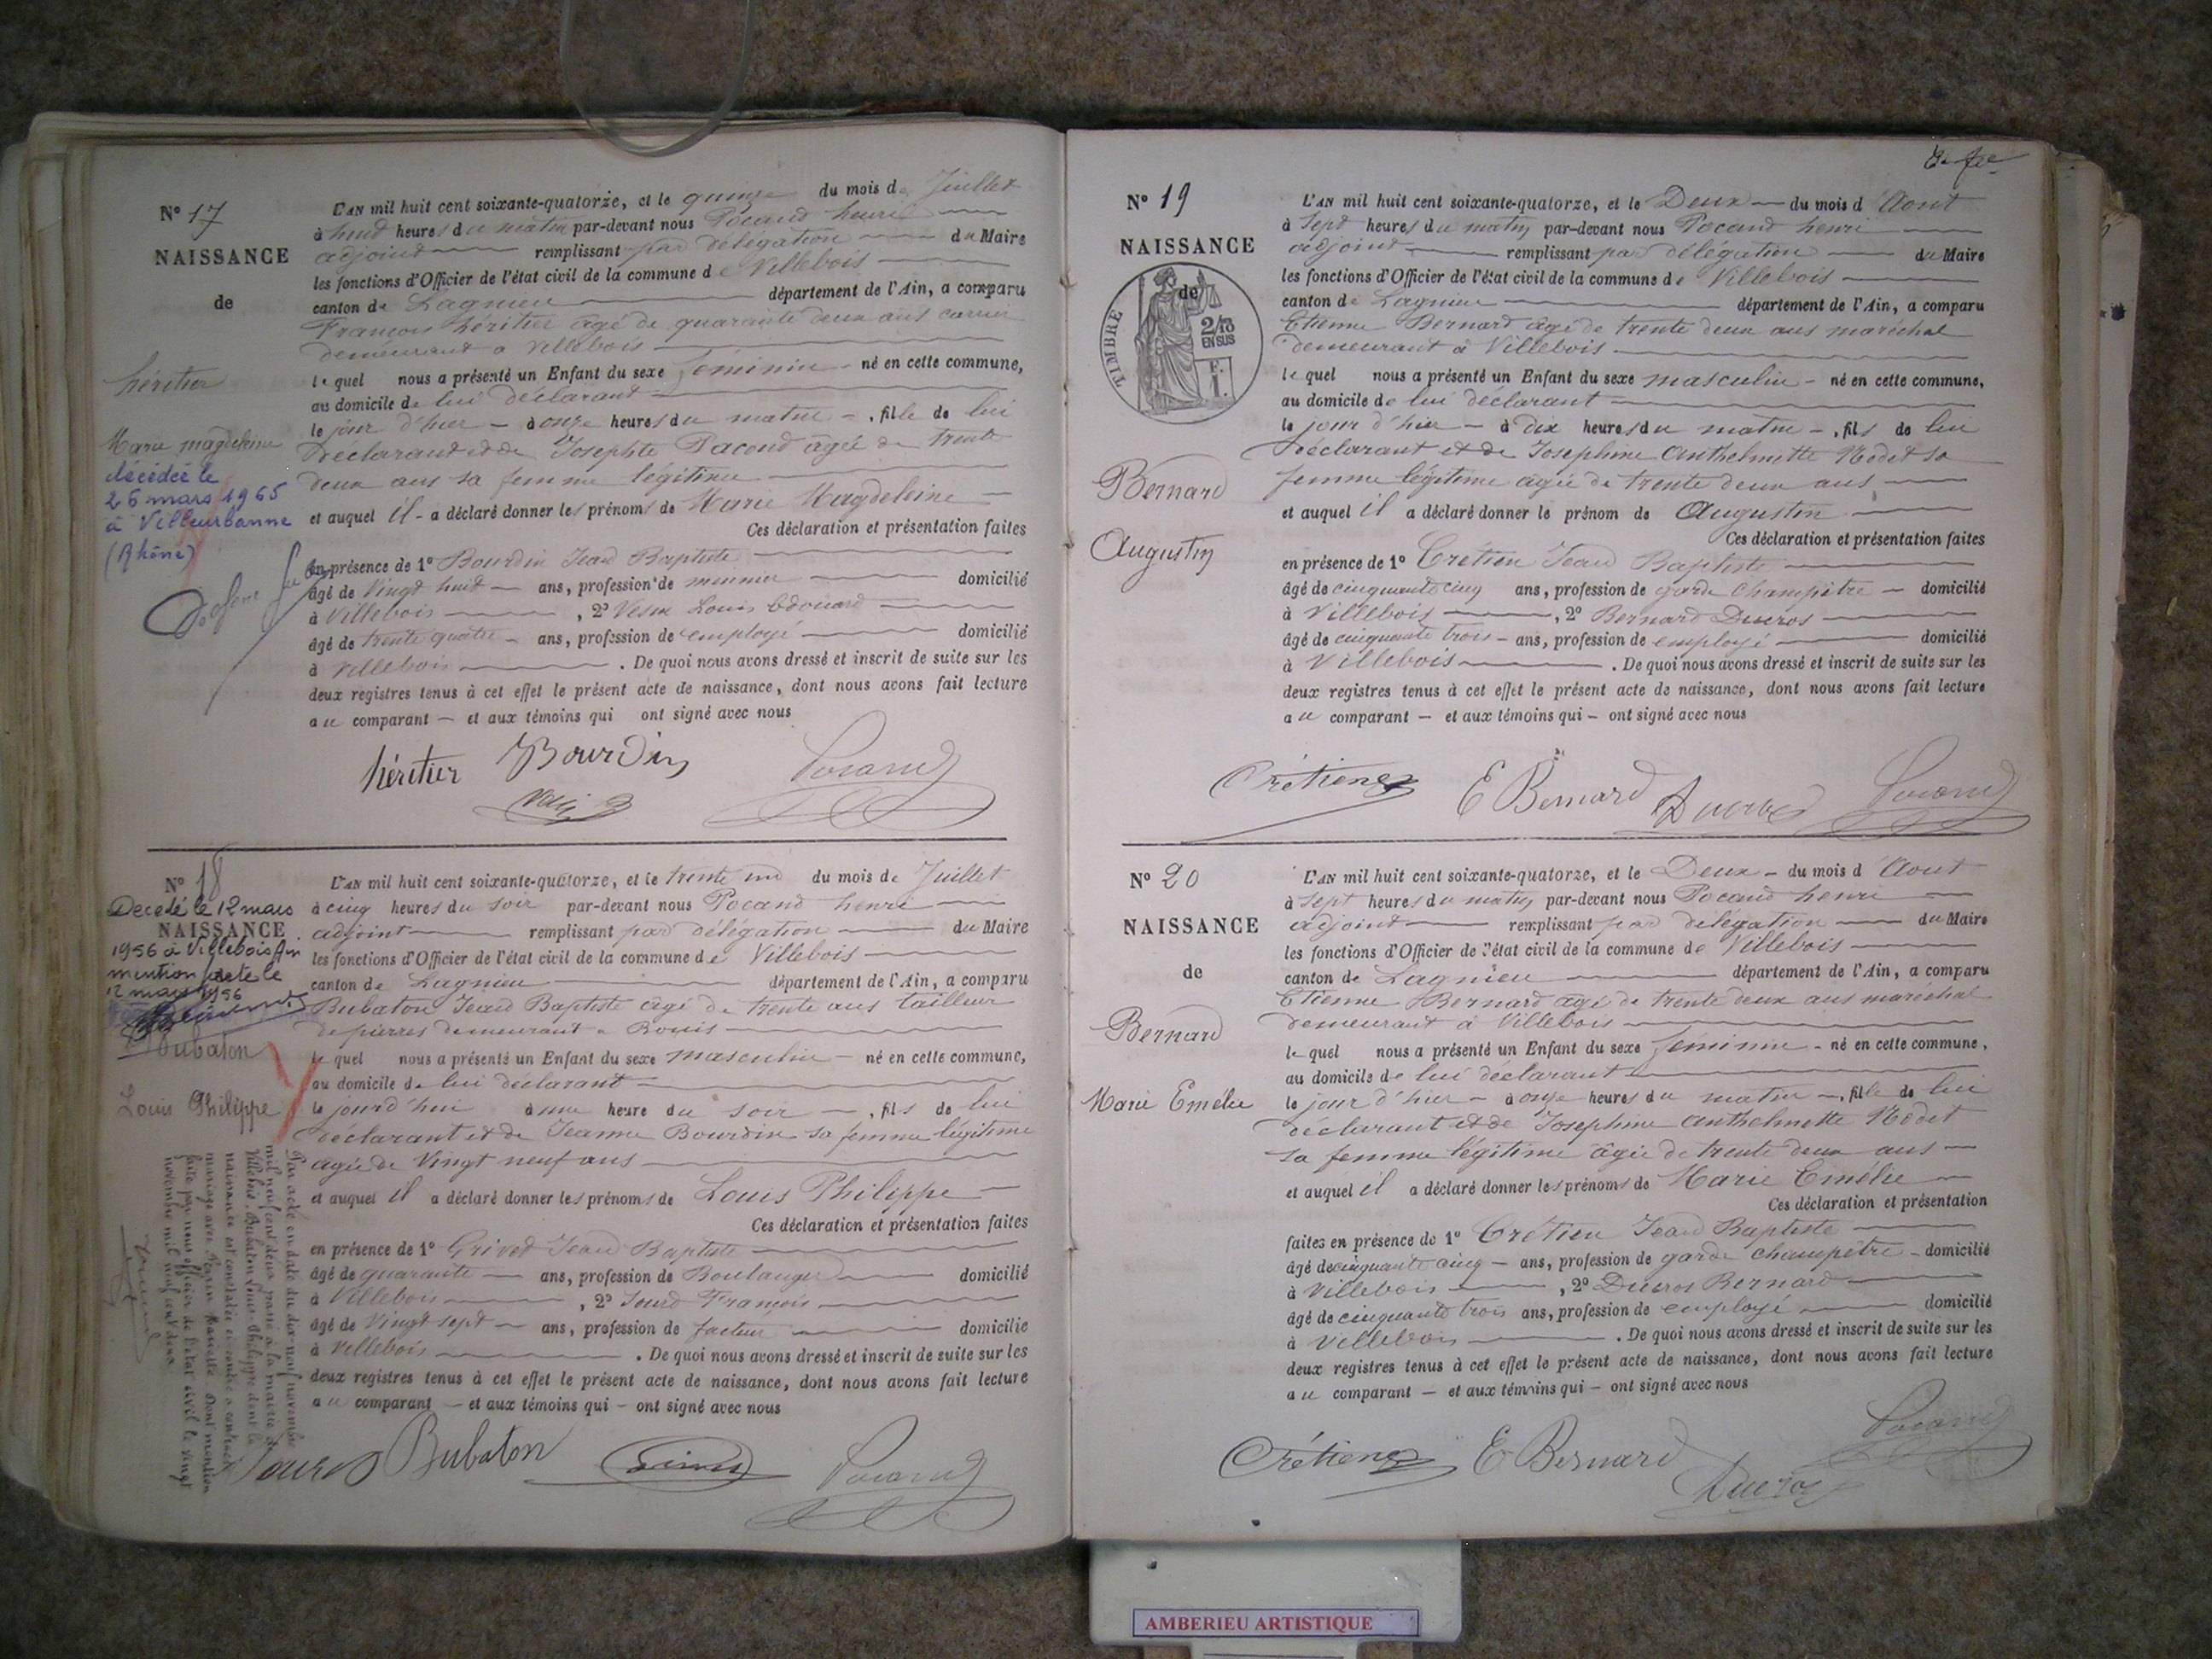 N° 17
NAISSANCE
de
héritier
Marie Magdeleine
décédée le
26 mars 1965
à Villeurbanne
(Rhône)
L'AN mil huit cent soixante-quatorze, et le quinze du mois de Juillet
à huit heures du matin par-devant nous Pocand henri
adjoint remplissant par délégation du Maire
les fonctions d'Officier de l'état civil de la commune de Villebois
canton de Lagnieu département de l'Ain, a comparu
François héritier âgé de quarante deux ans carrier
demeurant à Villebois
lequel nous a présenté un Enfant du sexe féminin né en cette commune,
au domicile de lui déclarant
le jour d'hier à onze heures du matin, fille de lui
Déclarant et de Josephte Pacond agée de trente
deux ans sa femme légitime
et auquel il a déclaré donner les prénoms de Marie Magdeleine
Ces déclaration et présentation faites
en présence de 1° Bourdin Jean Baptiste
âgé de Vingt huit ans, profession de meunier domicilié
à Villebois, 2° Louis Edouard
âgé de trente quatre ans, profession de employé domicilié
à Villebois. De quoi nous avons dressé et inscrit de suite sur les
deux registres tenus à cet effet le présent acte de naissance, dont nous avons fait lecture
au comparant — et aux témoins qui ont signé avec nous
héritier Bourdin Pocand
N° 18
NAISSANCE
Decedé le 12 mars
1956 à Villebois Ain
mention faite le
12 mars 1956
Bubaton
Louis Philippe
L'AN mil huit cent soixante-quatorze, et le trente un du mois de Juillet
à cinq heures du soir par-devant nous Pocand henri
adjoint remplissant par délégation du Maire
les fonctions d'Officier de l'état civil de la commune de Villebois
canton de Lagnieu département de l'Ain, a comparu
Bubaton Jean Baptiste âgé de trente ans tailleur
de pierres demeurant à Bouis
lequel nous a présenté un Enfant du sexe masculin né en cette commune,
au domicile de lui déclarant
le jourd'hui à une heure du soir, fils de lui
déclarant et de Jeanne Bourdin sa femme légitime
agée de Vingt neuf ans
et auquel il a déclaré donner les prénoms de Louis Philippe
Ces déclaration et présentation faites
en présence de 1° Grivet Jean Baptiste
âgé de quarante ans, profession de Boulanger domicilié
à Villebois, 2° Jourd François
âgé de Vingt sept ans, profession de facteur domicilié
à Villebois. De quoi nous avons dressé et inscrit de suite sur les
deux registres tenus à cet effet le présent acte de naissance, dont nous avons fait lecture
au comparant — et aux témoins qui — ont signé avec nous
Par acte en date du dix-neuf novembre
mil neuf cent deux passé à la mairie de
Villebois, Bubaton Louis-Philippe dont la
naissance est constatée ci-contre a contracté
mariage avec Dont mention
faite par nous officier de l'état civil le vingt
novembre mil neuf cent deux
Jourd Bubaton Pocand
N° 19
NAISSANCE
de
TIMBRE
2/10
EN SUS
F.
1.
Bernard
Augustin
L'AN mil huit cent soixante-quatorze, et le Deux du mois d'Aout
à Sept heures du matin par-devant nous Pocand henri
adjoint remplissant par délégation du Maire
les fonctions d'Officier de l'état civil de la commune de Villebois
canton de Lagnieu département de l'Ain, a comparu
Etienne Bernard âgé de trente deux ans maréchal
demeurant à Villebois
lequel nous a présenté un Enfant du sexe masculin né en cette commune,
au domicile de lui déclarant
le jour d'hier à dix heures du matin, fils de lui
déclarant et de Josephine Anthelmette Rodet sa
femme légitime agée de trente deux ans
et auquel il a déclaré donner le prénom de Augustin
Ces déclaration et présentation faites
en présence de 1° Crétien Jean Baptiste
âgé de cinquante cinq ans, profession de garde Champêtre domicilié
à Villebois, 2° Bernard Ducros
âgé de cinquante trois ans, profession de employé domicilié
à Villebois. De quoi nous avons dressé et inscrit de suite sur les
deux registres tenus à cet effet le présent acte de naissance, dont nous avons fait lecture
au comparant — et aux témoins qui — ont signé avec nous
Crétien E Bernard Ducros Pocand
N° 20
NAISSANCE
de
Bernard
Marie Emélie
L'AN mil huit cent soixante-quatorze, et le Deux du mois d'Aout
à sept heures du matin par-devant nous Pocand henri
adjoint remplissant par délégation du Maire
les fonctions d'Officier de l'état civil de la commune de Villebois
canton de Lagnieu département de l'Ain, a comparu
Etienne Bernard âgé de trente deux ans maréchal
demeurant à Villebois
lequel nous a présenté un Enfant du sexe féminin né en cette commune,
au domicile de lui déclarant
le jour d'hier à onze heures du matin, fille de lui
déclarant et de Josephine Anthelmette Rodet
sa femme légitime âgée de trente deux ans
et auquel il a déclaré donner les prénoms de Marie Emélie
Ces déclaration et présentation
faites en présence de 1° Crétien Jean Baptiste
âgé de cinquante cinq ans, profession de garde champêtre domicilié
à Villebois, 2° Ducros Bernard
âgé de cinquante trois ans, profession de employé domicilié
à Villebois. De quoi nous avons dressé et inscrit de suite sur les
deux registres tenus à cet effet le présent acte de naissance, dont nous avons fait lecture
au comparant — et aux témoins qui — ont signé avec nous
Crétien E Bernard Ducros Pocand
AMBERIEU ARTISTIQUE